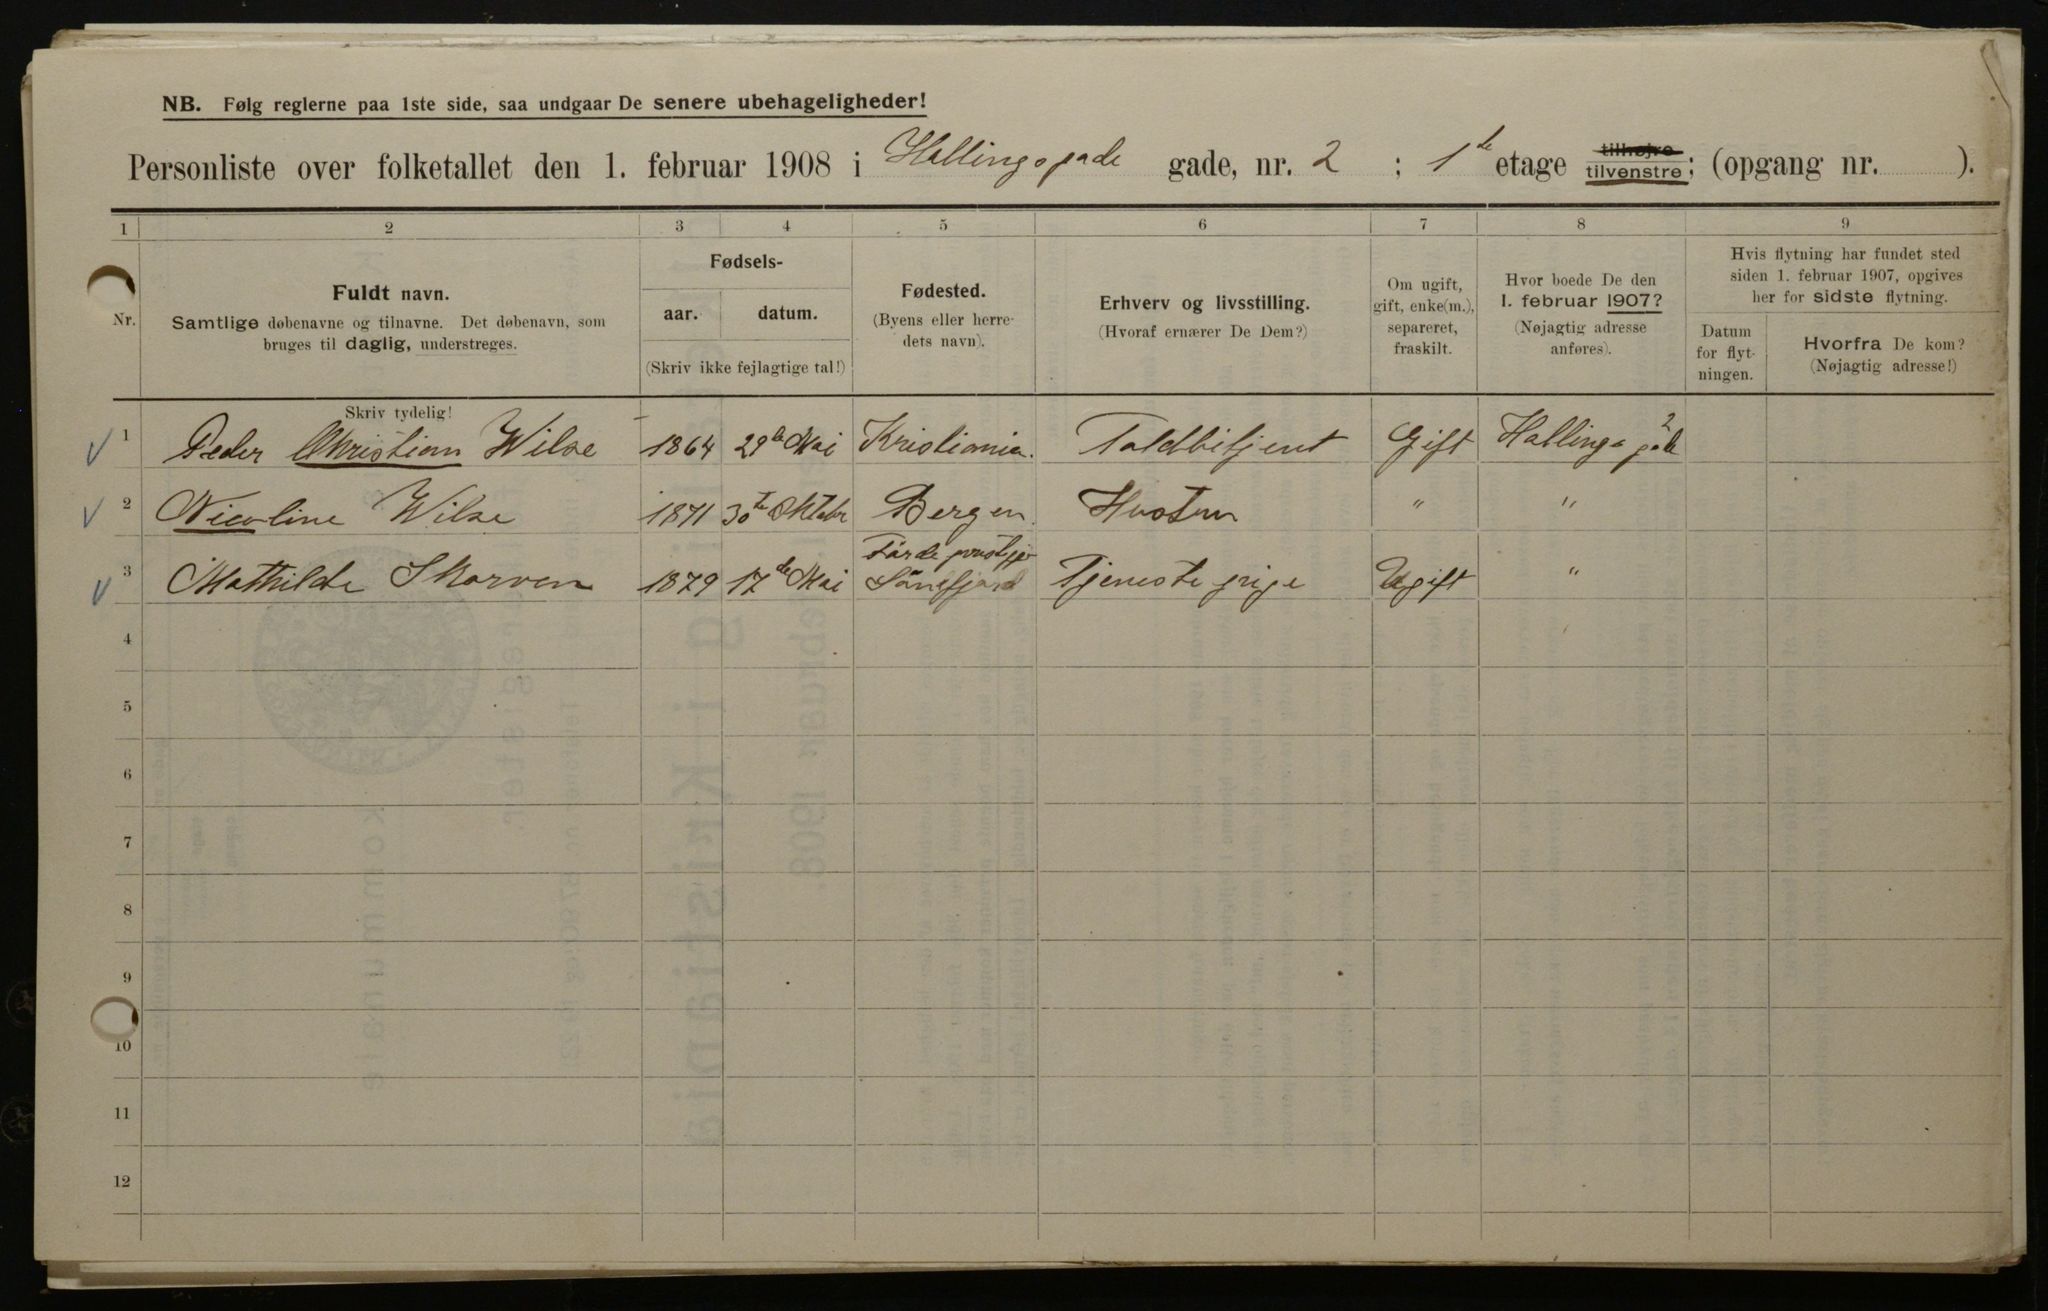 NB. Følg reglerne paa 1ste side, saa undgaar De senere ubehageligheder!
Personliste over folketallet den 1. februar 1908 i Hallingsgade gade, nr. 2 ; 1ste etage tilhøjre tilvenstre; (opgang nr. ).
1 2 3 4 5 6 7 8 9
Nr.
Fuldt navn.
Samtlige døbenavne og tilnavne. Det døbenavn, som
bruges til daglig, understreges.
Skriv tydelig!
Fødsels-
aar. datum.
(Skriv ikke fejlagtige tal!)
Fødested.
(Byens eller herre-
dets navn).
Erhverv og livsstilling.
(Hvoraf ernærer De Dem?)
Om ugift,
gift, enke(m.),
separeret,
fraskilt.
Hvor boede De den
1. februar 1907?
(Nøjagtig adresse
anføres).
Hvis flytning har fundet sted
siden 1. februar 1907, opgives
her for sidste flytning.
Datum
for flyt-
ningen.
Hvorfra De kom?
(Nøjagtig adresse!)
1 Peder Christian Wilse 1864 29de Mai Kristiania. Toldbitjent Gift Hallingsgade 2
2 Nicoline Wilse 1871 30te Oktobr Bergen. Hustru " "
3 Mathilde Skorven 1879 17de Mai Førde Søndfjord Tjenestepige Ugift "
4
5
6
7
8
9
10
11
12